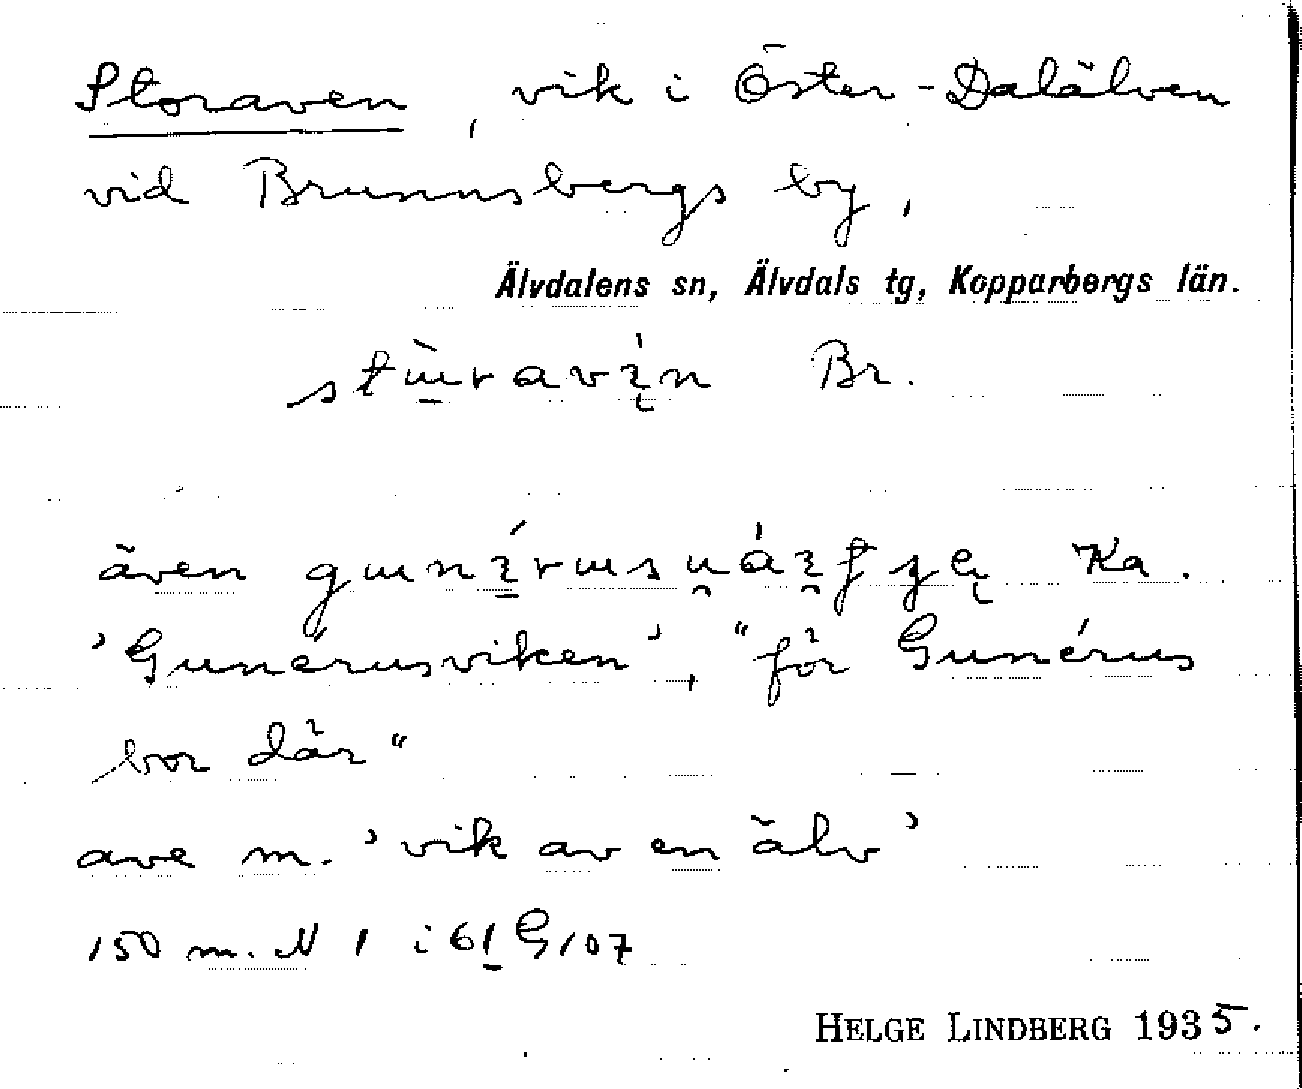 Storaven, vik i Öster-Dalälven
vid Brunnsbergs by,
Älvdalens sn, Älvdals tg, Kopparbergs län.
Br.
även Ka.
'Gunérusviken', "för Gunérus
bor där"
ave m. 'vik av en älv'
150 m. N 1 i 61 G 107
HELGE LINDBERG 1935.